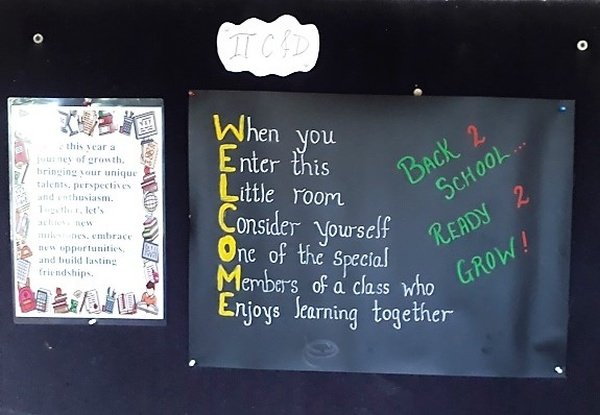 II C & D
this year a
journey of growth,
bringing your unique
talents, perspectives
and enthusiasm.
Together, let's
achieve new
milestones, embrace
new opportunities,
and build lasting
friendships.
When you
Enter this
Little room
Consider yourself
One of the Special
Members of a class who
Enjoys learning together
BACK 2
SCHOOL...
READY 2
GROW!